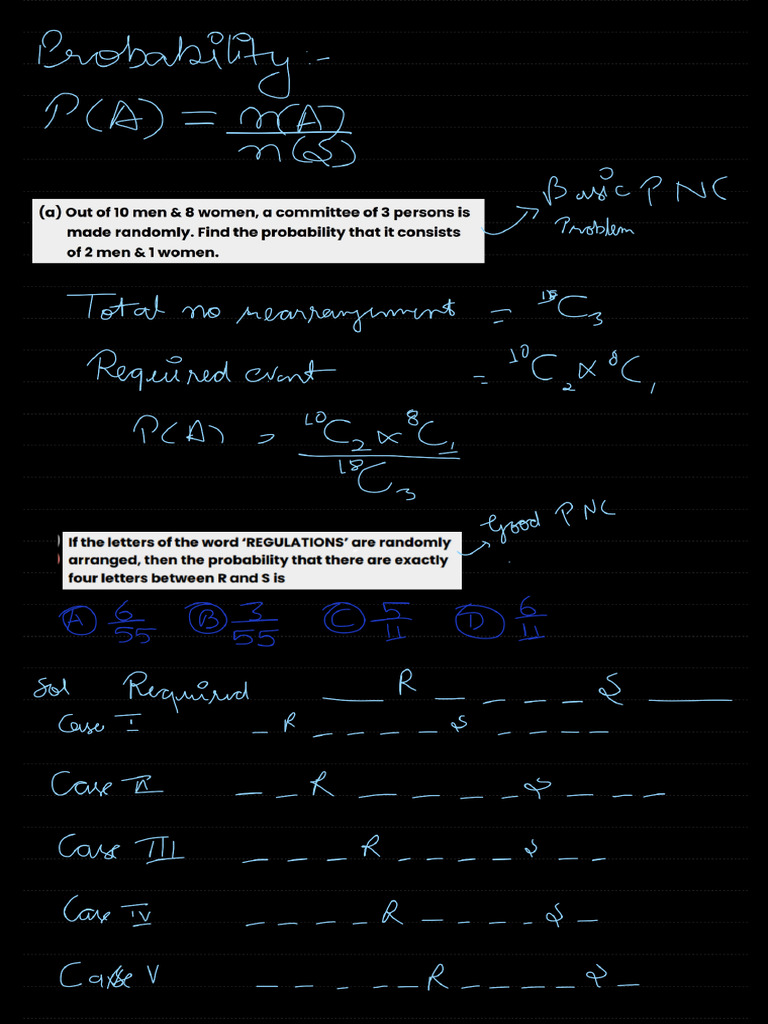 Probability :-
P(A) = n(A) / n(S)
Basic PNC
Problem
(a) Out of 10 men & 8 women, a committee of 3 persons is
made randomly. Find the probability that it consists
of 2 men & 1 women.
Total no rearrangement = ¹⁸C₃
Required event = ¹⁰C₂ × ⁸C₁
P(A) = ¹⁰C₂ × ⁸C₁ / ¹⁸C₃
Good PNC
If the letters of the word ‘REGULATIONS’ are randomly
arranged, then the probability that there are exactly
four letters between R and S is
(A) 6/55 (B) 3/55 (C) 5/11 (D) 6/11
Sol Required ___ R _ _ _ _ _ S ___
Case I _ R _ _ _ _ _ S _ _ _ _ _
Case II _ _ R _ _ _ _ _ S _ _ _ _
Case III _ _ _ _ R _ _ _ _ _ S _ _
Case IV _ _ _ _ _ R _ _ _ _ _ S _
Case V _ _ _ _ _ R _ _ _ _ _ S _